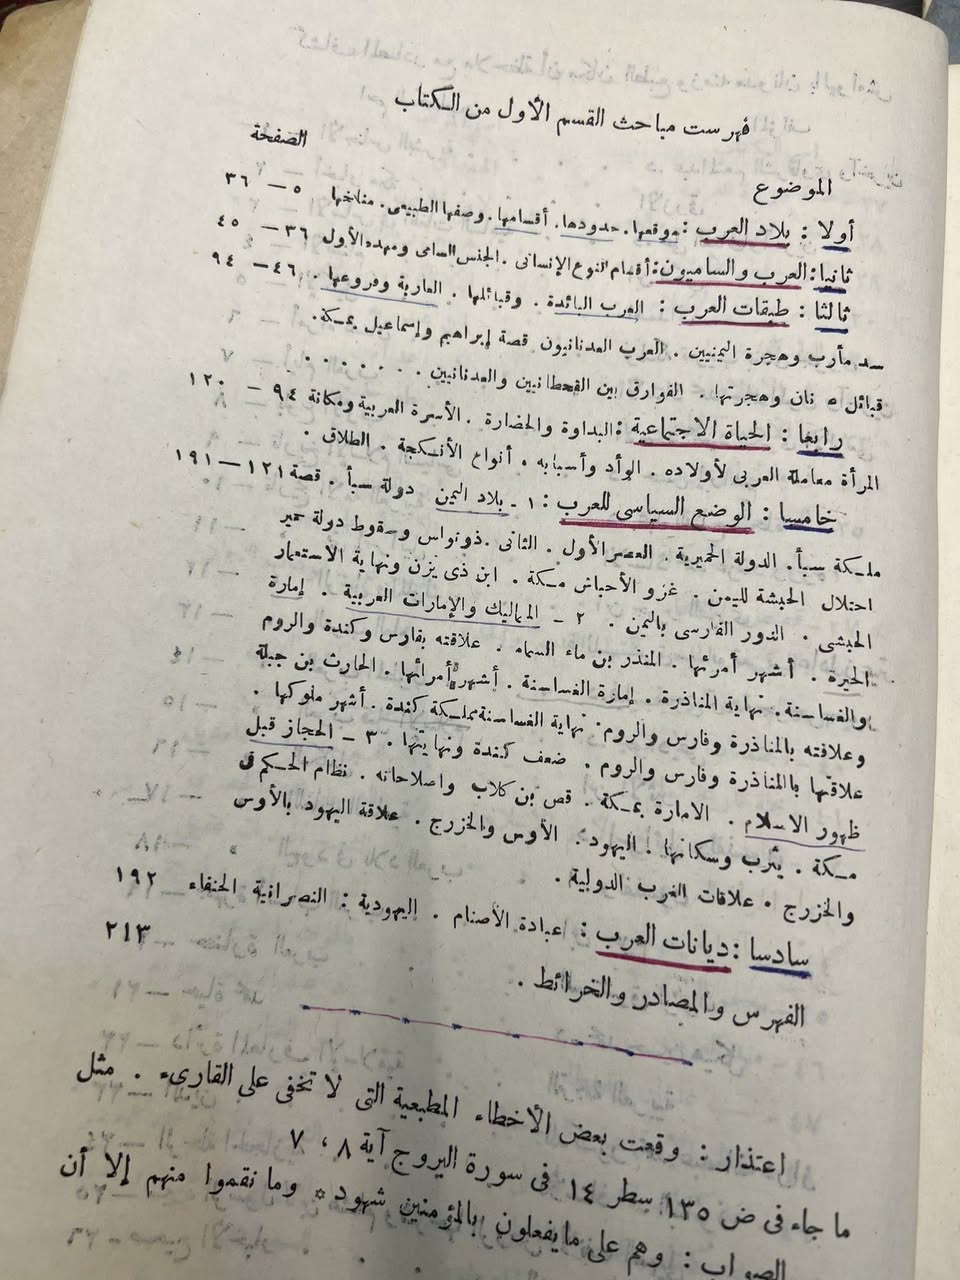 فهرست مباحث القسم الأول من الكتاب
الموضوع الصفحة
أولا : بلاد العرب : موقعها . حدودها . أقسامها . وصفها الطبيعى . مناخها ٥ — ٣٦
ثانيا : العرب والساميون : أقسام النوع الإنسانى . الجنس السامى ومهده الأول ٣٦ — ٤٥
ثالثا : طبقات العرب : العرب البائدة . وقبائلها . العاربة وفروعها . ٤٦ — ٩٤
سد مأرب وهجرة اليمنيين . العرب العدنانيون قصة إبراهيم وإسماعيل بمكة .
قبائل نان وهجرتها . الفوارق بين القحطانيين والعدنانيين . . . . . .
رابعا : الحياة الاجتماعية : البداوة والحضارة . الأسرة العربية ومكانة ٩٤ — ١٢٠
المرأة معاملة العربى لأولاده . الوأد وأسبابه . أنواع الأنكحة . الطلاق .
خامسا : الوضع السياسى للعرب : ١ ـ بلاد اليمن دولة سبأ . قصة ١٢١ — ١٩١
ملكة سبأ . الدولة الحميرية . العصر الأول . الثانى . ذونواس وسقوط دولة حمير
احتلال الحبشة لليمن . غزو الأحباش مكة . ابن ذى يزن ونهاية الاستعمار
الحبشى . الدور الفارسى باليمن . ٢ ـ المماليك والإمارات العربية . إمارة
الحيرة . أشهر أمرئها . المنذر بن ماء السماء . علاقته بفارس وكندة والروم
والغساسنة . نهاية المناذرة . إمارة الغساسنة . أشهر أمرائها . الحارث بن جبلة
وعلاقته بالمناذرة وفارس والروم . نهاية الغساسنة مملكة كندة . أشهر ملوكها .
علاقتها بالمناذرة وفارس والروم . ضعف كندة ونهايتها . ٣ ـ الحجاز قبل
ظهور الاسلام . الامارة بمكة . قصى بن كلاب واصلاحاته . نظام الحكم فى
مكة . يثرب وسكانها . اليهود : الأوس والخزرج . علاقة اليهود بالأوس
والخزرج . علاقات العرب الدولية .
سادسا : ديانات العرب : عبادة الأصنام . اليهودية : النصرانية الحنفاء ١٩٢
الفهرس والمصادر والخرائط . ٢١٣
اعتذار : وقعت بعض الأخطاء المطبعية التى لا تخفى على القارىء . مثل
ما جاء فى ص ١٣٥ سطر ١٤ فى سورة البروج آية ٨ ، ٧
الصواب : وهم على ما يفعلون بالمؤمنين شهود * وما نقموا منهم إلا أن